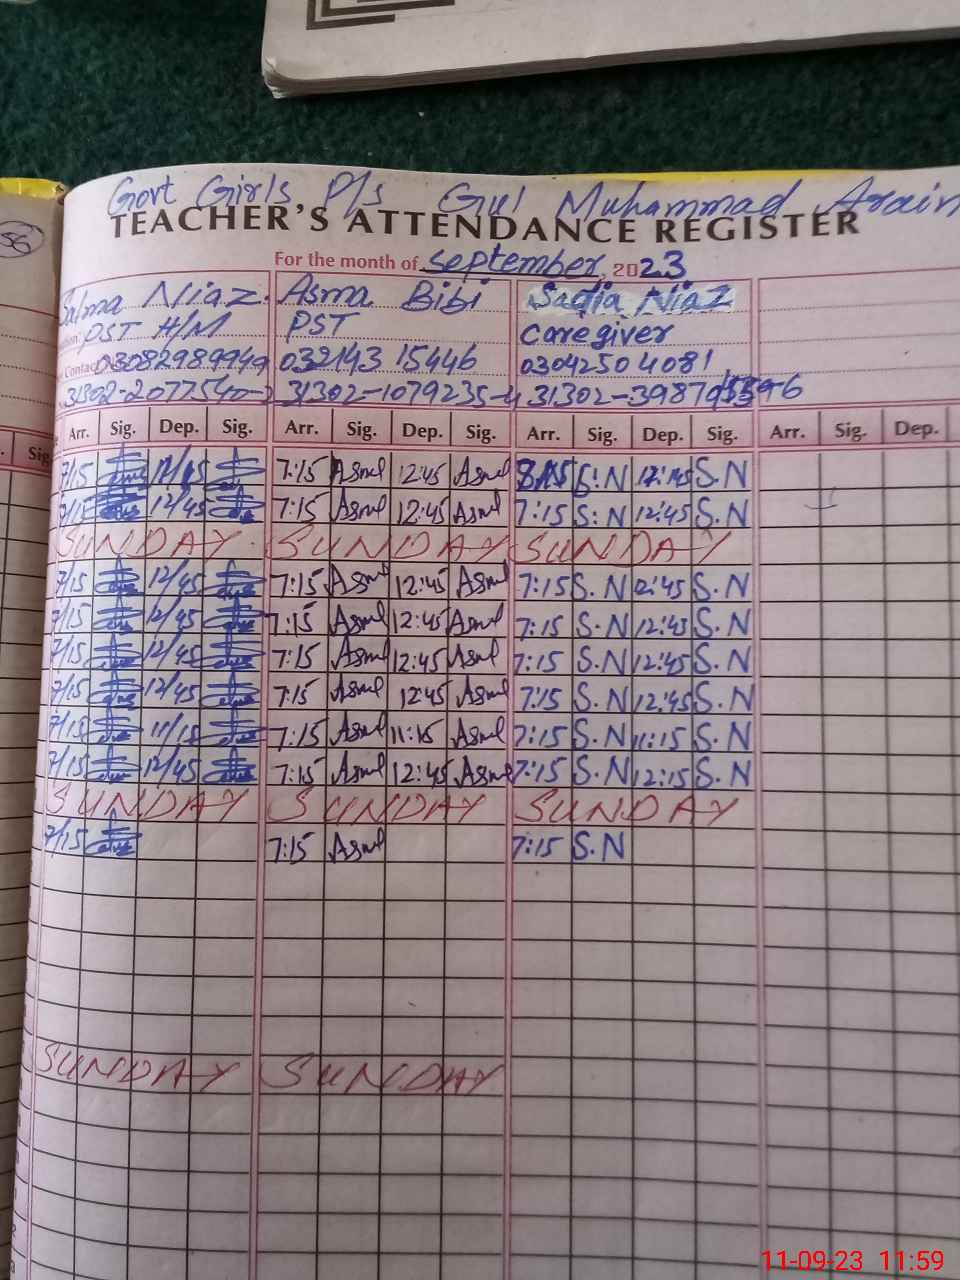 56
Govt Girls P/s Gul Muhammad Arain
TEACHER'S ATTENDANCE REGISTER
For the month of september, 2023
Salma Niaz. Asma Bibi Sadia Niaz
PST H/M PST Caregiver
Contact 03082989949 03214315446 03042504081
31302-2077540-2 31302-1079235-4 31302-39879
Sig. Arr. Sig. Dep. Sig. Arr. Sig. Dep. Sig. Arr. Sig. Dep. Sig. Arr. Sig. Dep.
7/15 12/45 7:15 Asml 12:45 Asml S.N 12:45 S.N
7/15 12/45 7:15 Asml 12:45 Asml 7:15 S.N 12:45 S.N
SUNDAY SUNDAY SUNDAY
7/15 12/45 7:15 Asml 12:45 Asml 7:15 S.N 12:45 S.N
7/15 12/45 7:15 Asml 12:45 Asml 7:15 S.N 12:45 S.N
7/15 12/45 7:15 Asml 12:45 Asml 7:15 S.N 12:45 S.N
7/15 12/45 7:15 Asml 12:45 Asml 7:15 S.N 12:45 S.N
7/15 11/15 7:15 Asml 11:15 Asml 7:15 S.N 11:15 S.N
7/15 12/45 7:15 Asml 12:45 Asml 7:15 S.N 12:15 S.N
SUNDAY SUNDAY SUNDAY
7/15 7:15 Asml 7:15 S.N
SUNDAY SUNDAY
11-09-23 11:59